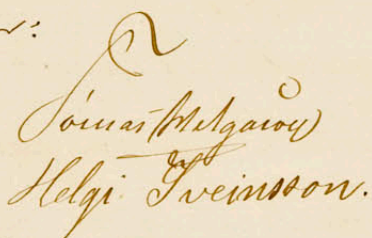 r:
Tómas Helgason
Helgi Sveinsson.